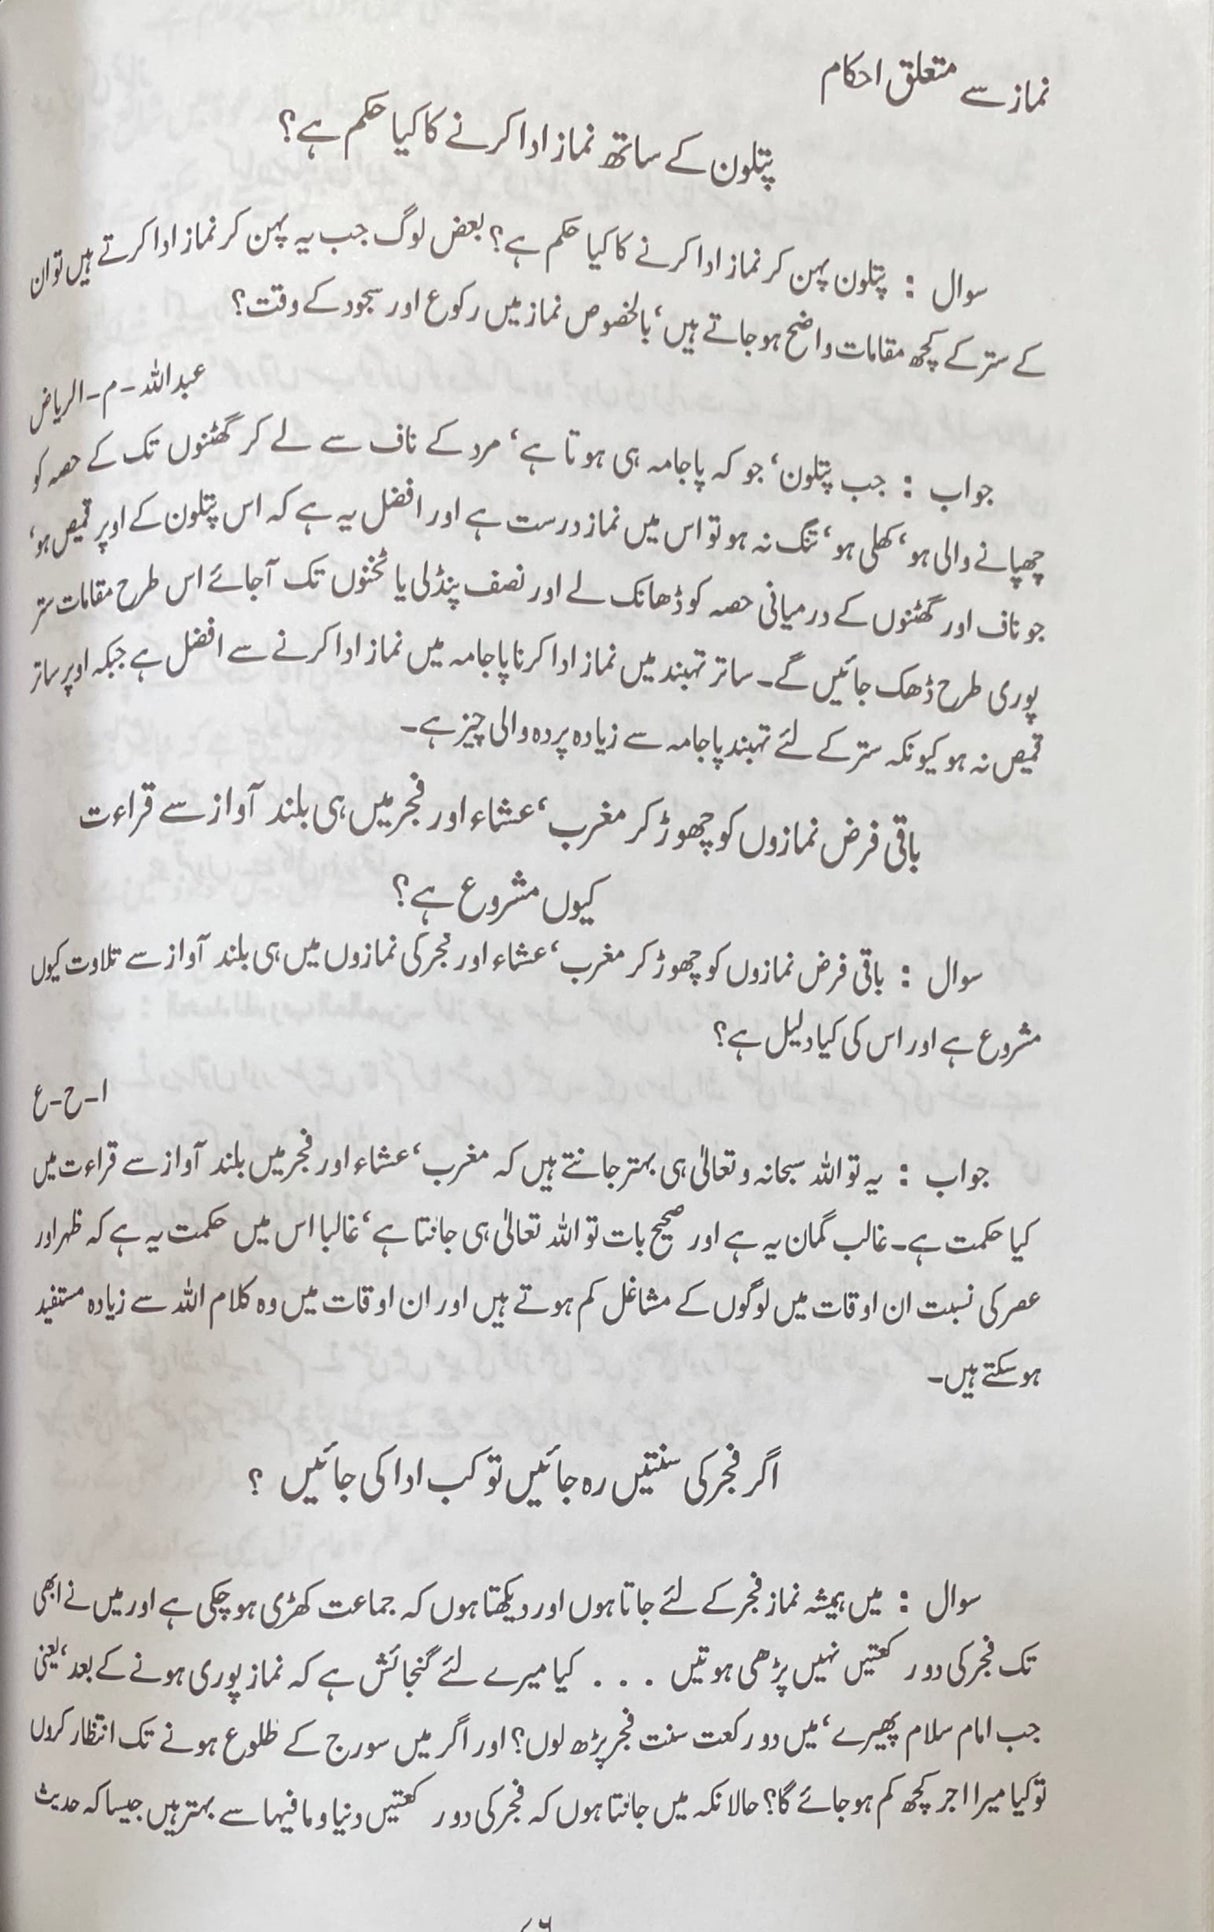 نماز سے متعلق احکام
پتلون کے ساتھ نماز ادا کرنے کا کیا حکم ہے؟
سوال : پتلون پہن کر نماز ادا کرنے کا کیا حکم ہے؟ بعض لوگ جب یہ پہن کر نماز ادا کرتے ہیں تو ان
کے ستر کے کچھ مقامات واضح ہو جاتے ہیں‘ بالخصوص نماز میں رکوع اور سجود کے وقت؟
عبداللہ۔م۔الریاض
جواب : جب پتلون‘ جو کہ پاجامہ ہی ہوتا ہے‘ مرد کے ناف سے لے کر گھٹنوں تک کے حصہ کو
چھپانے والی ہو‘ کھلی ہو‘ تنگ نہ ہو تو اس میں نماز درست ہے اور افضل یہ ہے کہ اس پتلون کے اوپر قمیص ہو‘
جو ناف اور گھٹنوں کے درمیانی حصہ کو ڈھانک لے اور نصف پنڈلی یا ٹخنوں تک آجائے اس طرح مقامات ستر
پوری طرح ڈھک جائیں گے۔ ساتر تہبند میں نماز ادا کرنا پاجامہ میں نماز ادا کرنے سے افضل ہے جبکہ اوپر ساتر
قمیص نہ ہو کیونکہ ستر کے لئے تہبند پاجامہ سے زیادہ پردہ والی چیز ہے۔
باقی فرض نمازوں کو چھوڑ کر مغرب‘ عشاء اور فجر میں ہی بلند آواز سے قراءت
کیوں مشروع ہے؟
سوال : باقی فرض نمازوں کو چھوڑ کر مغرب‘ عشاء اور فجر کی نمازوں میں ہی بلند آواز سے تلاوت کیوں
مشروع ہے اور اس کی کیا دلیل ہے؟
ا۔ح۔ع
جواب : یہ تو اللہ سبحانہ وتعالیٰ ہی بہتر جانتے ہیں کہ مغرب‘ عشاء اور فجر میں بلند آواز سے قراءت میں
کیا حکمت ہے۔ غالب گمان یہ ہے اور صحیح بات تو اللہ تعالیٰ ہی جانتا ہے‘ غالبا اس میں حکمت یہ ہے کہ ظہر اور
عصر کی نسبت ان اوقات میں لوگوں کے مشاغل کم ہوتے ہیں اور ان اوقات میں وہ کلام اللہ سے زیادہ مستفید
ہو سکتے ہیں۔
اگر فجر کی سنتیں رہ جائیں تو کب ادا کی جائیں ؟
سوال : میں ہمیشہ نماز فجر کے لئے جاتا ہوں اور دیکھتا ہوں کہ جماعت کھڑی ہو چکی ہے اور میں نے ابھی
تک فجر کی دو رکعتیں نہیں پڑھی ہوتیں . . . کیا میرے لئے گنجائش ہے کہ نماز پوری ہونے کے بعد‘ یعنی
جب امام سلام پھیرے‘ میں دو رکعت سنت فجر پڑھ لوں؟ اور اگر میں سورج کے طلوع ہونے تک انتظار کروں
تو کیا میرا اجر کچھ کم ہو جائے گا؟ حالانکہ میں جانتا ہوں کہ فجر کی دو رکعتیں دنیا وما فیہا سے بہتر ہیں جیسا کہ حدیث